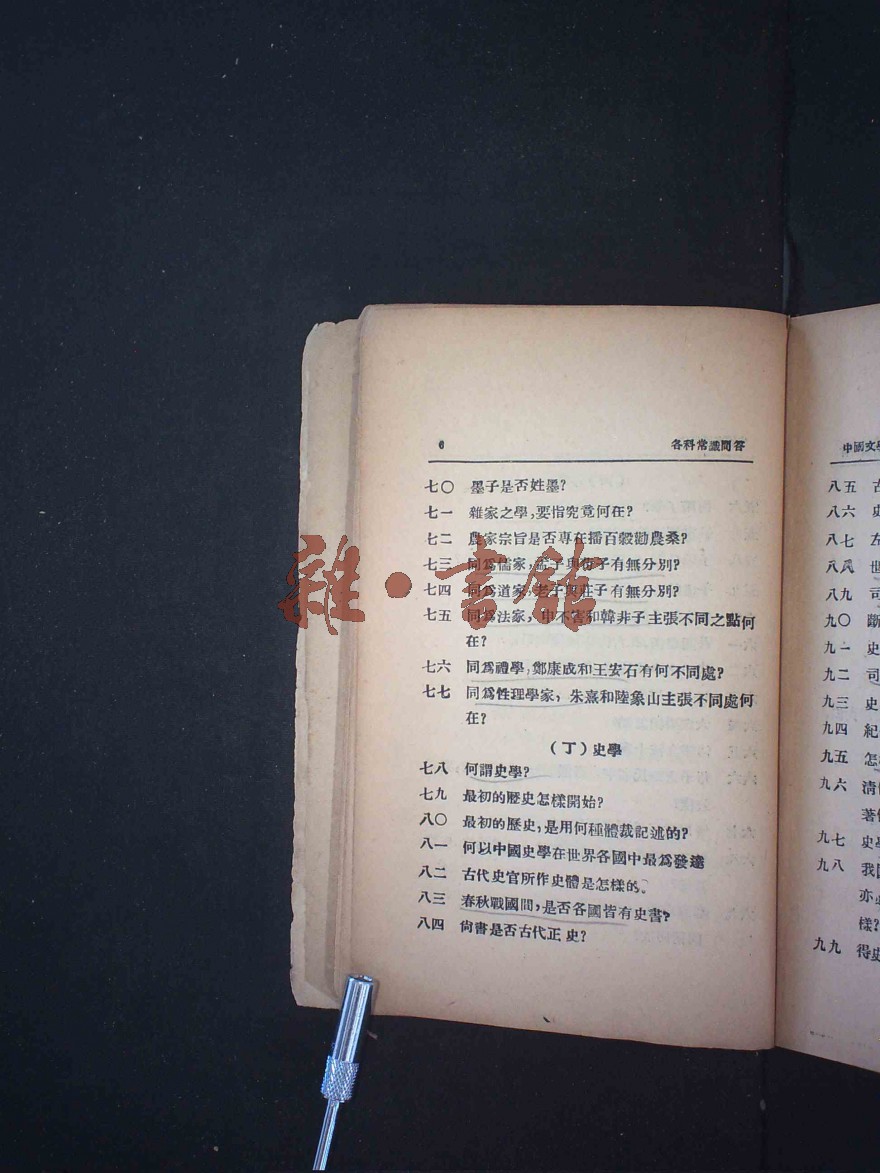 6 各科常識問答
七〇 墨子是否姓墨?
七一 雜家之學,要指究竟何在?
七二 農家宗旨是否専在播百穀勸農桑?
七三 同爲儒家,孟子與荀子有無分別?
七四 同爲道家,老子與莊子有無分別?
七五 同爲法家,申不害和韓非子主張不同之點何
在?
七六 同爲禮學,鄭康成和王安石有何不同處?
七七 同爲性理學家,朱熹和陸象山主張不同處何
在?
(丁)史學
七八 何謂史學?
七九 最初的歷史怎樣開始?
八〇 最初的歷史,是用何種體裁記述的?
八一 何以中國史學在世界各國中最爲發達
八二 古代史官所作史體是怎樣的。
八三 春秋戰國間,是否各國皆有史書?
八四 尙書是否古代正史?
雜·書館
中國文學
八五 古
八六 史
八七 左
八八 世
八九 司
九〇 斷
九一 史
九二 司
九三 史
九四 紀
九五 怎
九六 淸
著作
九七 史學
九八 我國
亦
樣?
九九 得史